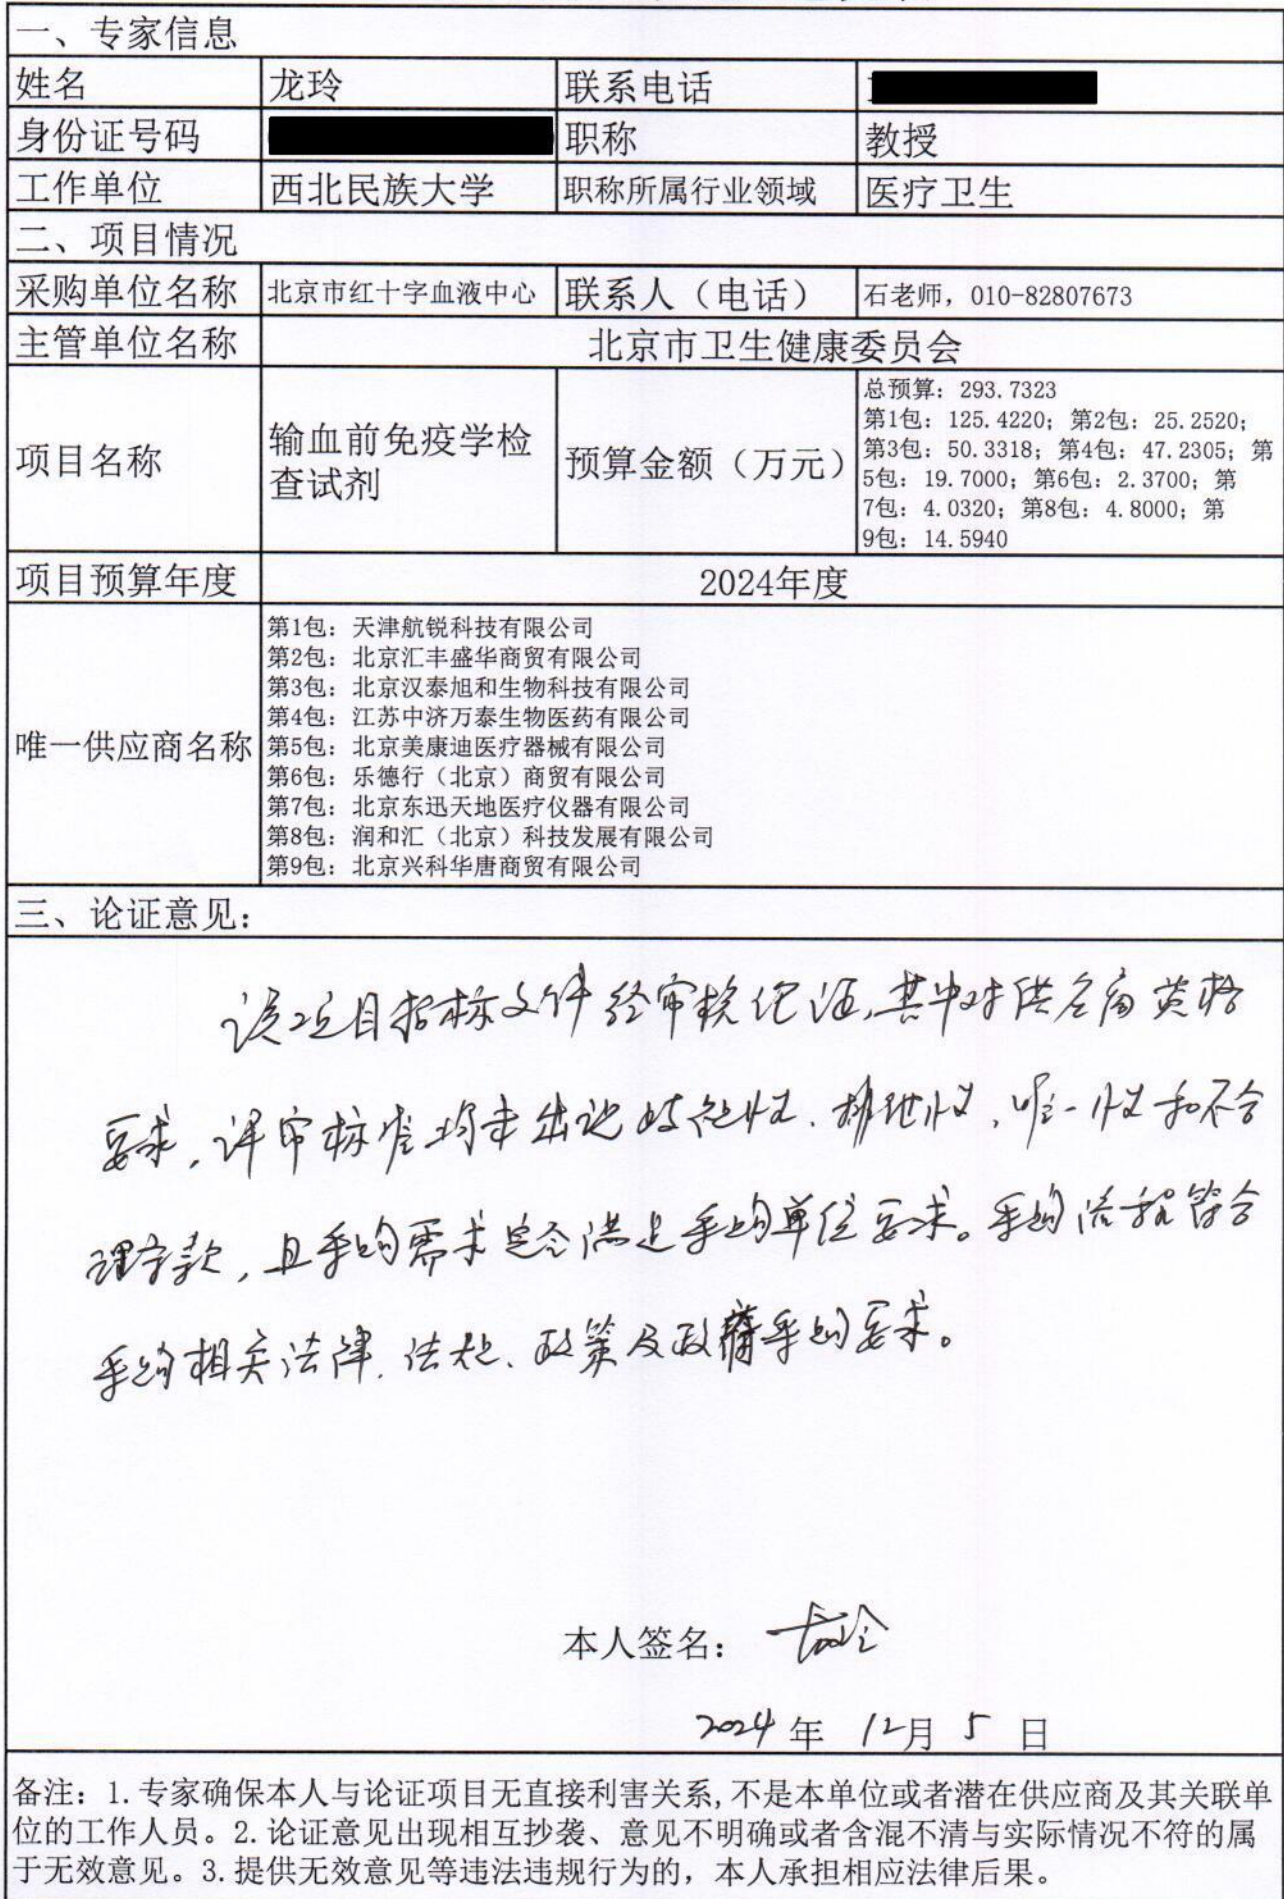 一、专家信息
姓名 龙玲 联系电话
身份证号码 职称 教授
工作单位 西北民族大学 职称所属行业领域 医疗卫生
二、项目情况
采购单位名称 北京市红十字血液中心 联系人（电话） 石老师，010-82807673
主管单位名称 北京市卫生健康委员会
项目名称 输血前免疫学检查试剂 预算金额（万元）
总预算：293.7323
第1包：125.4220；第2包：25.2520；
第3包：50.3318；第4包：47.2305；第
5包：19.7000；第6包：2.3700；第
7包：4.0320；第8包：4.8000；第
9包：14.5940
项目预算年度 2024年度
唯一供应商名称
第1包：天津航锐科技有限公司
第2包：北京汇丰盛华商贸有限公司
第3包：北京汉泰旭和生物科技有限公司
第4包：江苏中济万泰生物医药有限公司
第5包：北京美康迪医疗器械有限公司
第6包：乐德行（北京）商贸有限公司
第7包：北京东迅天地医疗仪器有限公司
第8包：润和汇（北京）科技发展有限公司
第9包：北京兴科华唐商贸有限公司
三、论证意见：
该项目招标文件经审核论证,其中对供应商资格
要求,评审标准均未出现歧视性、排他性,唯一性和不合
理字款,且采购需求完全满足采购单位要求。采购流程符合
采购相关法律、法规、政策及政府采购要求。
本人签名：龙玲
2024 年 12月 5 日
备注：1.专家确保本人与论证项目无直接利害关系,不是本单位或者潜在供应商及其关联单
位的工作人员。2.论证意见出现相互抄袭、意见不明确或者含混不清与实际情况不符的属
于无效意见。3.提供无效意见等违法违规行为的，本人承担相应法律后果。